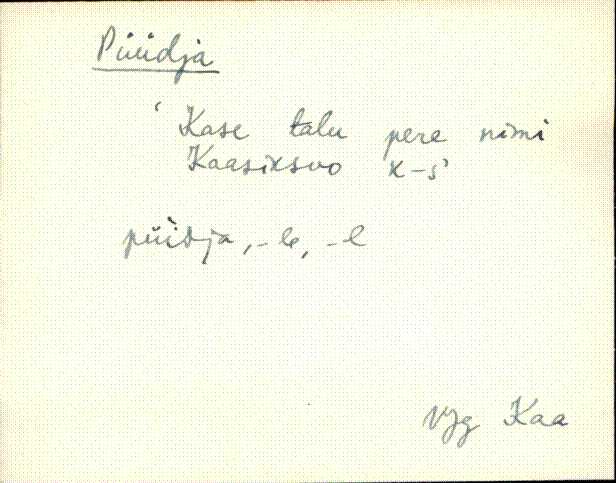 Püüdja
‘Kase talu pere nimi
Kaasiksoo k-s’
püìdja, -le, -l
Vjg Kaa